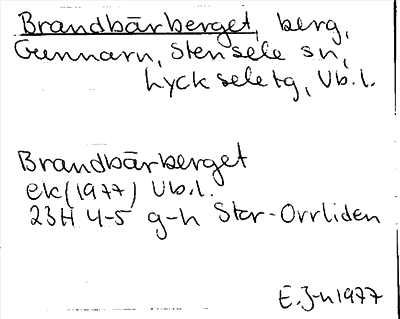 Brandbärberget, berg,
Gunnarn, Stensele sn,
Lycksele tg, Vb.l.
Brandbärberget
ek (1977) Vb.l.
23H 4-5 g-h Stor-Orrliden
E. J-n 1977